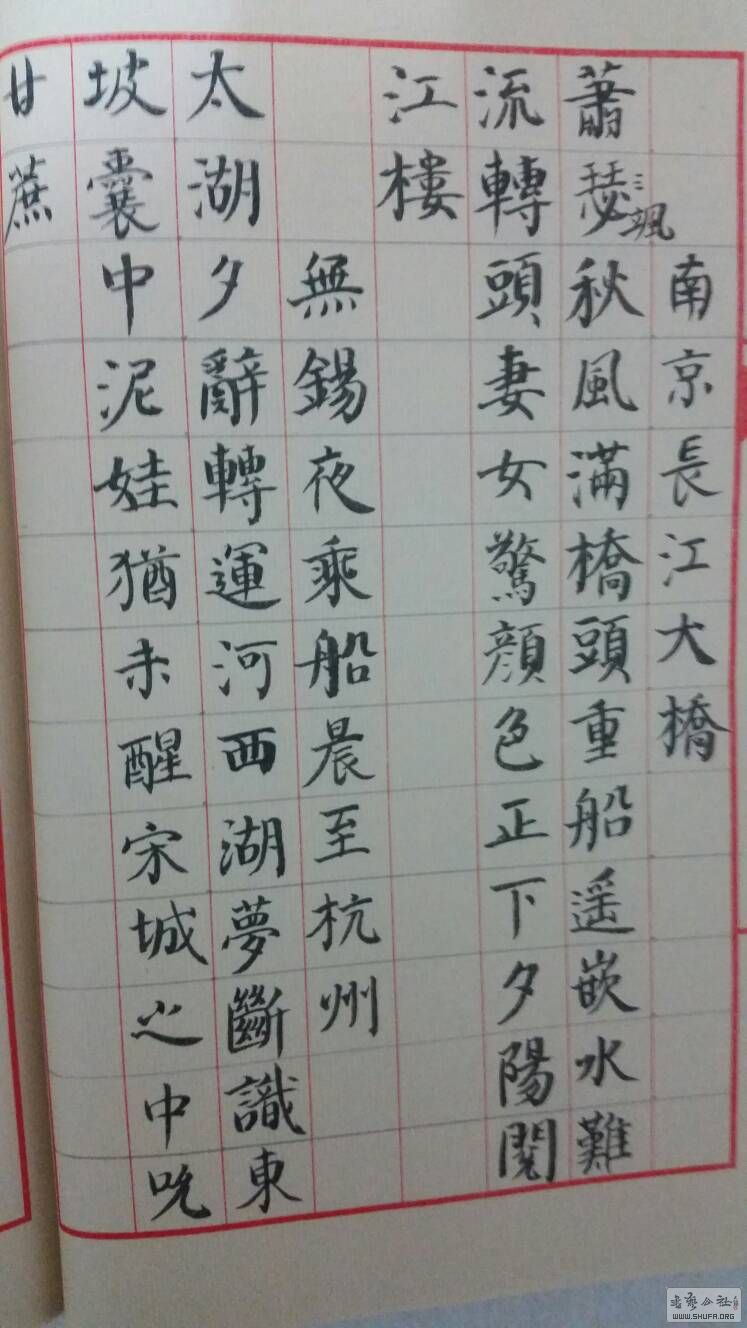 南京長江大橋
蕭瑟秋風滿橋頭重船遥嵌水難
颯
流轉頭妻女驚顔色正下夕陽閲
江樓
無錫夜乘船晨至杭州
太湖夕辭轉運河西湖夢斷識東
坡囊中泥娃猶未醒宋城之中吮
甘蔗
WWW.SHUFA.ORG